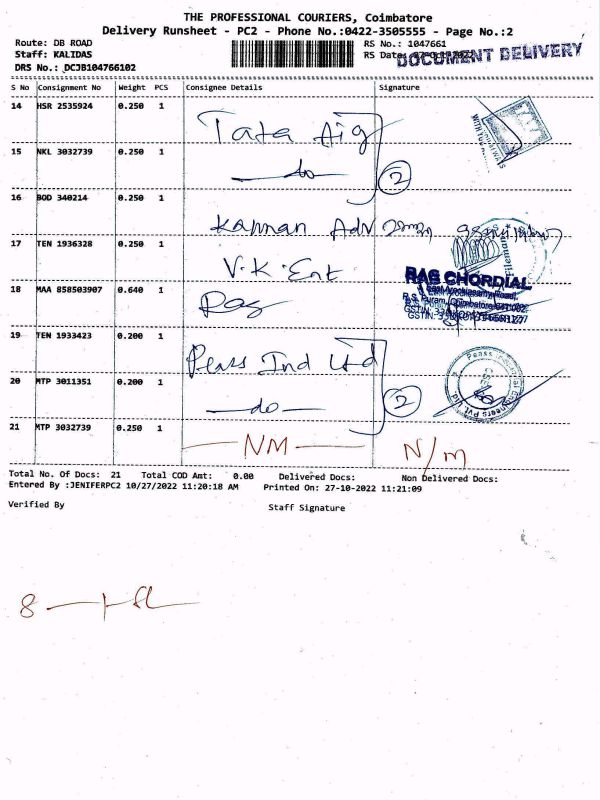 THE PROFESSIONAL COURIERS, Coimbatore
Delivery Runsheet - PC2 - Phone No.:0422-3505555 - Page No.:2
Route: DB ROAD
RS No.: 1047661
Staff: KALIDAS
RS Date:
DOCUMENT DELIVERY
DRS No.: DCJB104766102
S No Consignment No Weight PCS Consignee Details Signature
14 HSR 2535924 0.250 1 Tata Aig
15 NKL 3032739 0.250 1 do 2
16 BOD 340214 0.250 1 Kannan Adv
17 TEN 1936328 0.250 1 V.K. Ent
18 MAA 858503907 0.640 1 Rag
RAG CHORDIAL
19 TEN 1933423 0.200 1 Penss Ind Ltd
20 MTP 3011351 0.200 1 do 2
21 MTP 3032739 0.250 1 NM N/m
Total No. Of Docs: 21 Total COD Amt: 0.00 Delivered Docs: Non Delivered Docs:
Entered By :JENIFERPC2 10/27/2022 11:20:18 AM Printed On: 27-10-2022 11:21:09
Verified By Staff Signature
8